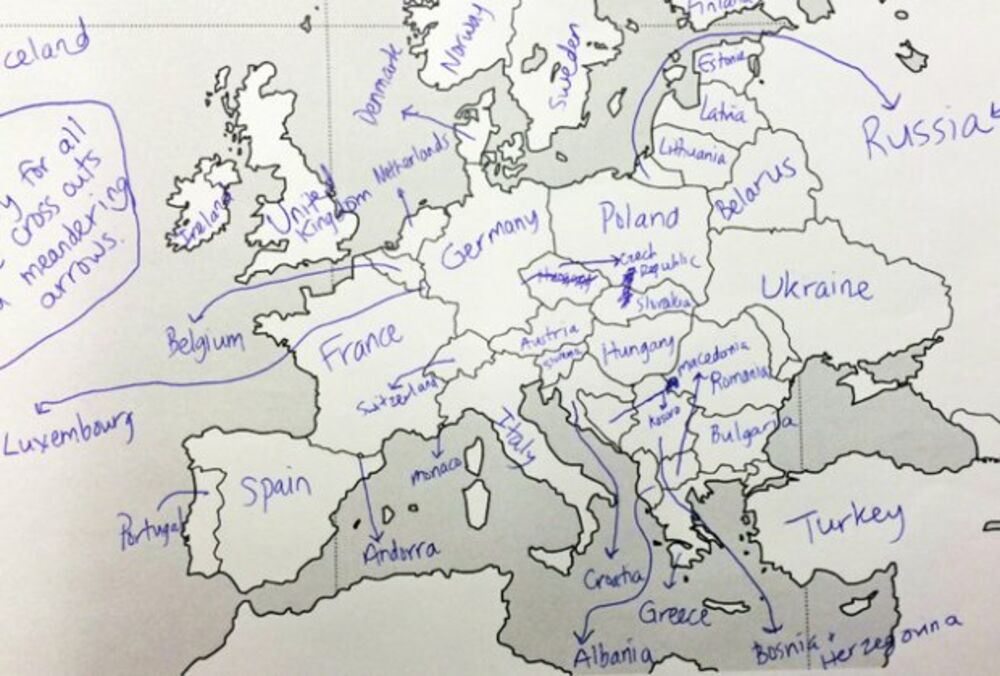 celand
y for all
cross outs
meandering
arrows.
Norway
Sweden
Finland
Denmark
Estonia
Latvia
Lithuania
Russia
Netherlands
Ireland
United
Kingdom
Belarus
Germany
Poland
Czech
Republic
Slovakia
Ukraine
Belgium
France
Austria
Hungary
Switzerland
Macedonia
Romania
Luxembourg
Italy
Kosovo
Bulgaria
monaco
Spain
Portugal
Andorra
Turkey
Croatia
Greece
Albania
Bosnia +
Herzegovina